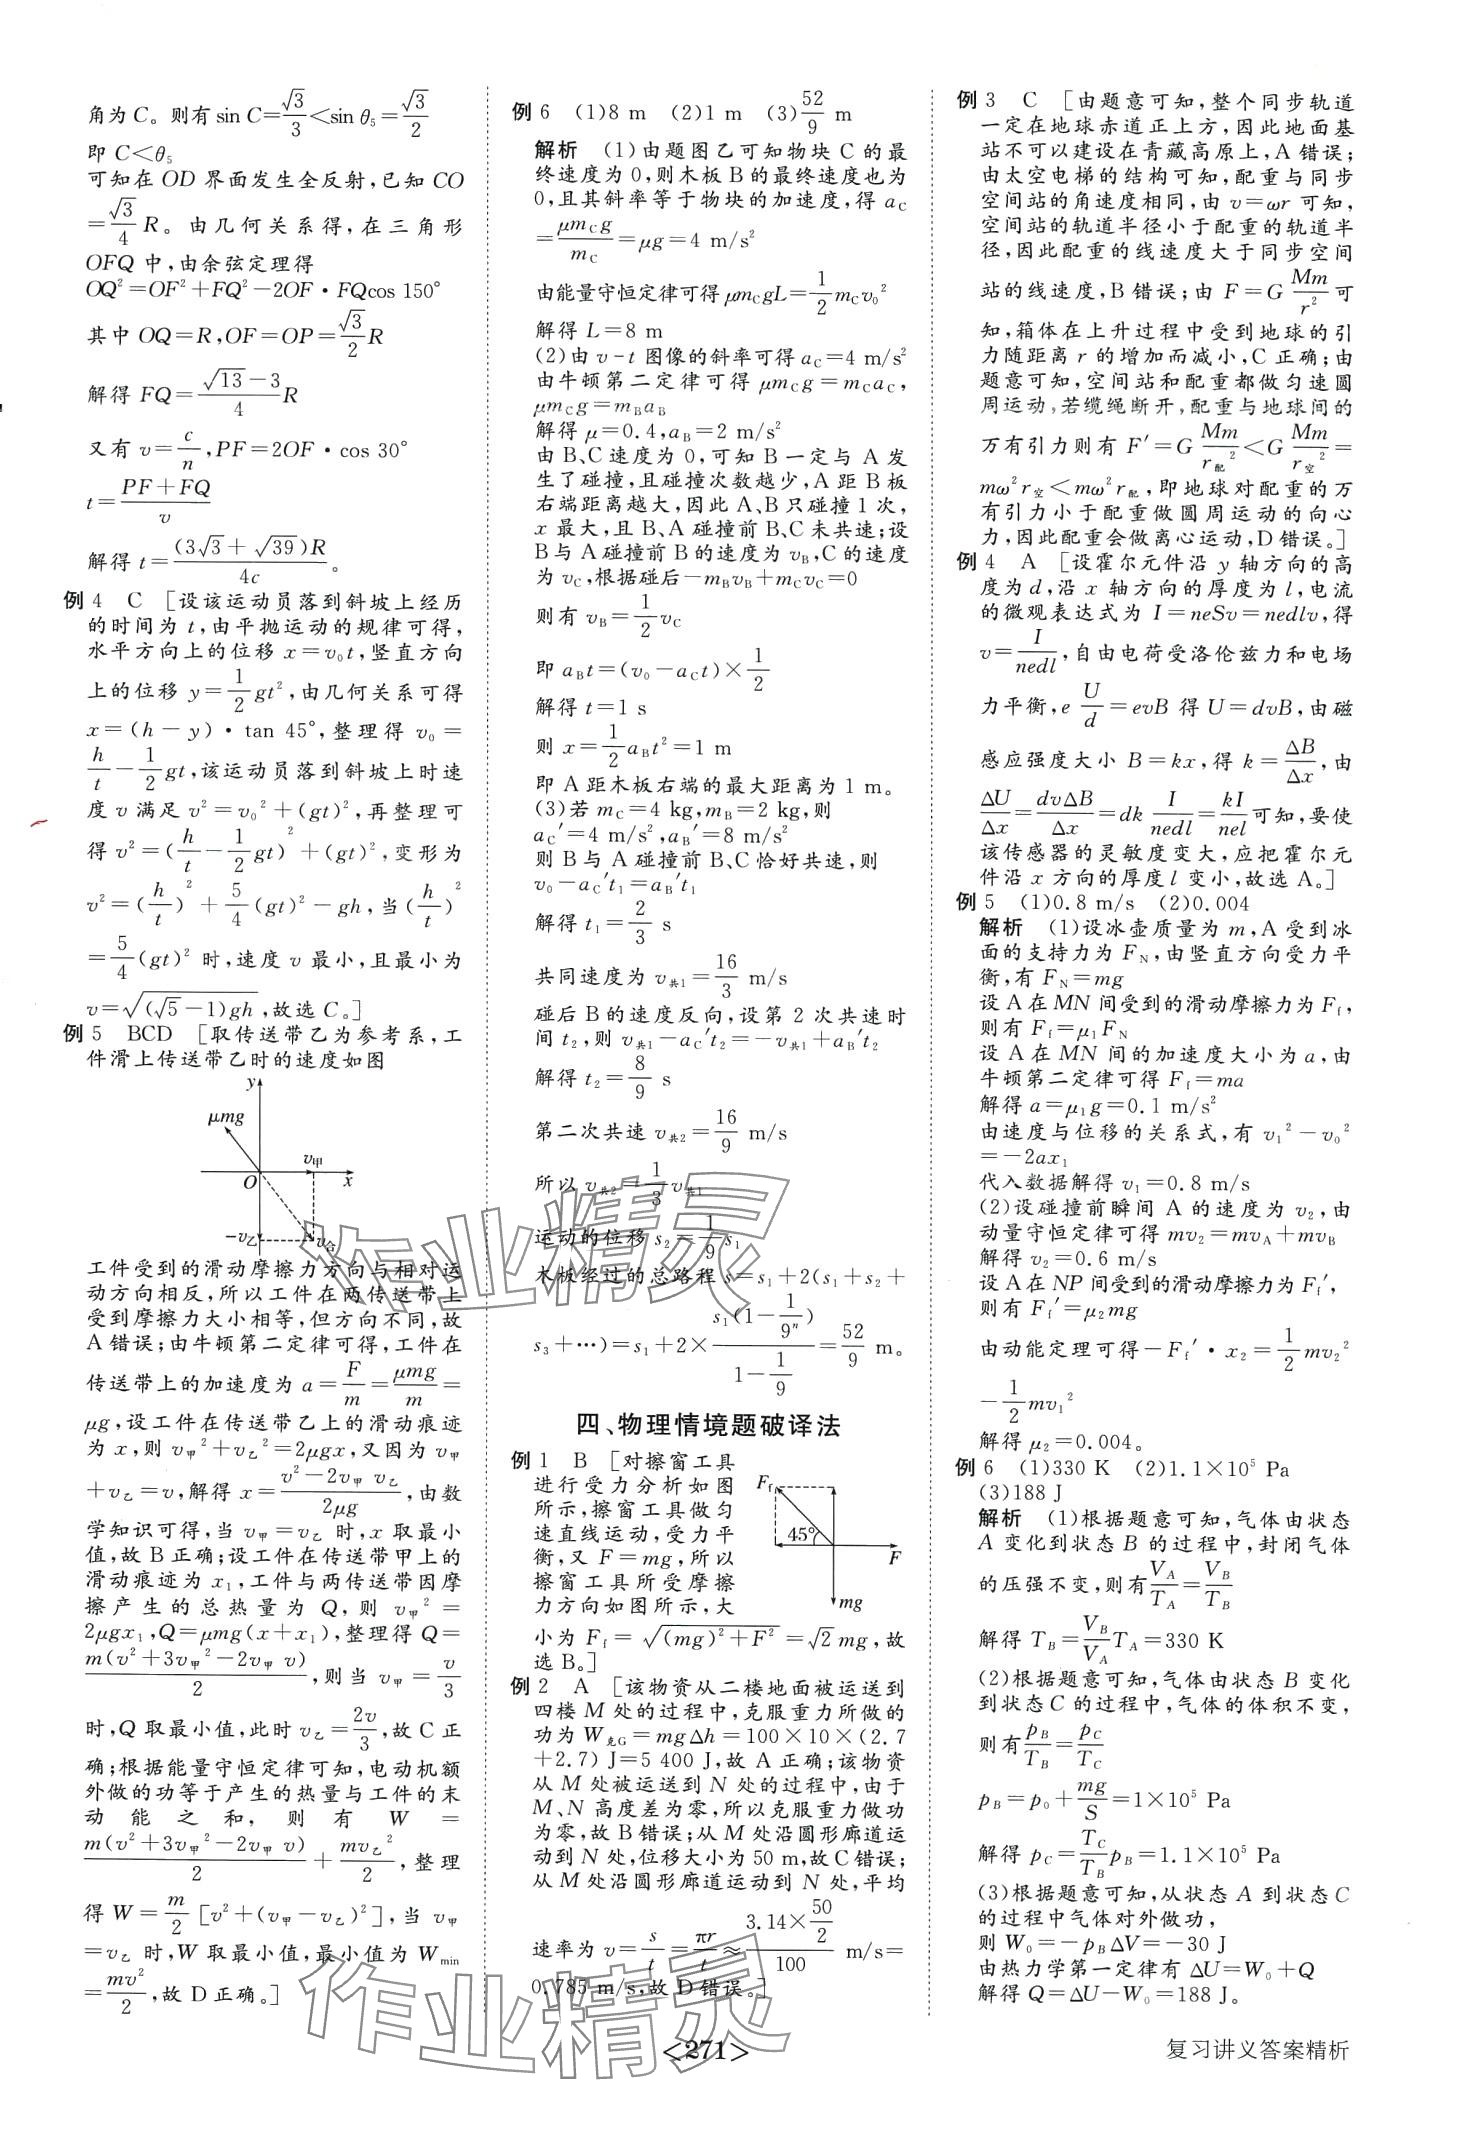 角为 C。则有 sin C=√3/3<sin θ₅=√3/2
即 C<θ₅
可知在 OD 界面发生全反射,已知 CO
=√3/4 R。由几何关系得,在三角形
OFQ 中,由余弦定理得
OQ²=OF²+FQ²-2OF·FQcos 150°
其中 OQ=R,OF=OP=√3/2 R
解得 FQ=(√13-3)/4 R
又有 v=c/n,PF=2OF·cos 30°
t=(PF+FQ)/v
解得 t=(3√3+√39)R/4c。
例 4 C [设该运动员落到斜坡上经历
的时间为 t,由平抛运动的规律可得,
水平方向上的位移 x=v₀t,竖直方向
上的位移 y=1/2 gt²,由几何关系可得
x=(h-y)·tan 45°,整理得 v₀=
h/t-1/2 gt,该运动员落到斜坡上时速
度 v 满足 v²=v₀²+(gt)²,再整理可
得 v²=(h/t-1/2 gt)²+(gt)²,变形为
v²=(h/t)²+5/4(gt)²-gh,当(h/t)²
=5/4(gt)² 时,速度 v 最小,且最小为
v=√((√5-1)gh),故选 C。]
例 5 BCD [取传送带乙为参考系,工
件滑上传送带乙时的速度如图
y
μmg
v甲
O
x
-v乙
v合
工件受到的滑动摩擦力方向与相对运
动方向相反,所以工件在两传送带上
受到摩擦力大小相等,但方向不同,故
A 错误;由牛顿第二定律可得,工件在
传送带上的加速度为 a=F/m=μmg/m=
μg,设工件在传送带乙上的滑动痕迹
为 x,则 v甲²+v乙²=2μgx,又因为 v甲
+v乙=v,解得 x=(v²-2v甲 v乙)/2μg,由数
学知识可得,当 v甲=v乙 时,x 取最小
值,故 B 正确;设工件在传送带甲上的
滑动痕迹为 x₁,工件与两传送带因摩
擦产生的总热量为 Q,则 v甲²=
2μgx₁,Q=μmg(x+x₁),整理得 Q=
m(v²+3v甲²-2v甲 v)/2,则当 v甲=v/3
时,Q 取最小值,此时 v乙=2v/3,故 C 正
确;根据能量守恒定律可知,电动机额
外做的功等于产生的热量与工件的末
动能之和,则有 W=
m(v²+3v甲²-2v甲 v)/2+mv乙²/2,整理
得 W=m/2[v²+(v甲-v乙)²],当 v甲
=v乙 时,W 取最小值,最小值为 Wmin
=mv²/2,故 D 正确。]
例 6 (1)8 m (2)1 m (3)52/9 m
解析 (1)由题图乙可知物块 C 的最
终速度为 0,则木板 B 的最终速度也为
0,且其斜率等于物块的加速度,得 aC
=μmCg/mC=μg=4 m/s²
由能量守恒定律可得 μmCgL=1/2 mCv₀²
解得 L=8 m
(2)由 v-t 图像的斜率可得 aC=4 m/s²
由牛顿第二定律可得 μmCg=mCaC,
μmCg=mBaB
解得 μ=0.4,aB=2 m/s²
由 B、C 速度为 0,可知 B 一定与 A 发
生了碰撞,且碰撞次数越少,A 距 B 板
右端距离越大,因此 A、B 只碰撞 1 次,
x 最大,且 B、A 碰撞前 B、C 未共速;设
B 与 A 碰撞前 B 的速度为 vB,C 的速度
为 vC,根据碰后-mBvB+mCvC=0
则有 vB=1/2 vC
即 aBt=(v₀-aCt)×1/2
解得 t=1 s
则 x=1/2 aBt²=1 m
即 A 距木板右端的最大距离为 1 m。
(3)若 mC=4 kg,mB=2 kg,则
aC′=4 m/s²,aB′=8 m/s²
则 B 与 A 碰撞前 B、C 恰好共速,则
v₀-aC′t₁=aB′t₁
解得 t₁=2/3 s
共同速度为 v共1=16/3 m/s
碰后 B 的速度反向,设第 2 次共速时
间 t₂,则 v共1-aC′t₂=-v共1+aB′t₂
解得 t₂=8/9 s
第二次共速 v共2=16/9 m/s
所以 v共2=1/3 v共1
运动的位移 s₂=1/9 s₁
木板经过的总路程 s=s₁+2(s₁+s₂+
s₃+…)=s₁+2×s₁(1-1/9ⁿ)/(1-1/9)=52/9 m。
四、物理情境题破译法
例 1 B [对擦窗工具
进行受力分析如图
所示,擦窗工具做匀
速直线运动,受力平
衡,又 F=mg,所以
擦窗工具所受摩擦
力方向如图所示,大
Ff
45°
F
mg
小为 Ff=√((mg)²+F²)=√2 mg,故
选 B。]
例 2 A [该物资从二楼地面被运送到
四楼 M 处的过程中,克服重力所做的
功为 W克G=mgΔh=100×10×(2.7
+2.7) J=5 400 J,故 A 正确;该物资
从 M 处被运送到 N 处的过程中,由于
M、N 高度差为零,所以克服重力做功
为零,故 B 错误;从 M 处沿圆形廊道运
动到 N 处,位移大小为 50 m,故 C 错误;
从 M 处沿圆形廊道运动到 N 处,平均
速率为 v=s/t=πr/t≈(3.14×50/2)/100 m/s=
0.785 m/s,故 D 错误。]
例 3 C [由题意可知,整个同步轨道
一定在地球赤道正上方,因此地面基
站不可以建设在青藏高原上,A 错误;
由太空电梯的结构可知,配重与同步
空间站的角速度相同,由 v=ωr 可知,
空间站的轨道半径小于配重的轨道半
径,因此配重的线速度大于同步空间
站的线速度,B 错误;由 F=G Mm/r² 可
知,箱体在上升过程中受到地球的引
力随距离 r 的增加而减小,C 正确;由
题意可知,空间站和配重都做匀速圆
周运动,若缆绳断开,配重与地球间的
万有引力则有 F′=G Mm/r配²<G Mm/r空²=
mω²r空<mω²r配,即地球对配重的万
有引力小于配重做圆周运动的向心
力,因此配重会做离心运动,D 错误。]
例 4 A [设霍尔元件沿 y 轴方向的高
度为 d,沿 x 轴方向的厚度为 l,电流
的微观表达式为 I=neSv=nedlv,得
v=I/nedl,自由电荷受洛伦兹力和电场
力平衡,e U/d=evB 得 U=dvB,由磁
感应强度大小 B=kx,得 k=ΔB/Δx,由
ΔU/Δx=dvΔB/Δx=dk I/nedl=kI/nel 可知,要使
该传感器的灵敏度变大,应把霍尔元
件沿 x 方向的厚度 l 变小,故选 A。]
例 5 (1)0.8 m/s (2)0.004
解析 (1)设冰壶质量为 m,A 受到冰
面的支持力为 FN,由竖直方向受力平
衡,有 FN=mg
设 A 在 MN 间受到的滑动摩擦力为 Ff,
则有 Ff=μ₁FN
设 A 在 MN 间的加速度大小为 a,由
牛顿第二定律可得 Ff=ma
解得 a=μ₁g=0.1 m/s²
由速度与位移的关系式,有 v₁²-v₀²
=-2ax₁
代入数据解得 v₁=0.8 m/s
(2)设碰撞前瞬间 A 的速度为 v₂,由
动量守恒定律可得 mv₂=mvA+mvB
解得 v₂=0.6 m/s
设 A 在 NP 间受到的滑动摩擦力为 Ff′,
则有 Ff′=μ₂mg
由动能定理可得-Ff′·x₂=1/2 mv₂²
-1/2 mv₁²
解得 μ₂=0.004。
例 6 (1)330 K (2)1.1×10⁵ Pa
(3)188 J
解析 (1)根据题意可知,气体由状态
A 变化到状态 B 的过程中,封闭气体
的压强不变,则有 VA/TA=VB/TB
解得 TB=VB/VA TA=330 K
(2)根据题意可知,气体由状态 B 变化
到状态 C 的过程中,气体的体积不变,
则有 pB/TB=pC/TC
pB=p₀+mg/S=1×10⁵ Pa
解得 pC=TC/TB pB=1.1×10⁵ Pa
(3)根据题意可知,从状态 A 到状态 C
的过程中气体对外做功,
则 W₀=-pBΔV=-30 J
由热力学第一定律有 ΔU=W₀+Q
解得 Q=ΔU-W₀=188 J。
作业精灵
作业精灵
<271>
复习讲义答案精析